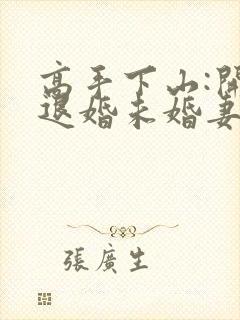 高手下山:開
退婚未婚妻
張廣生